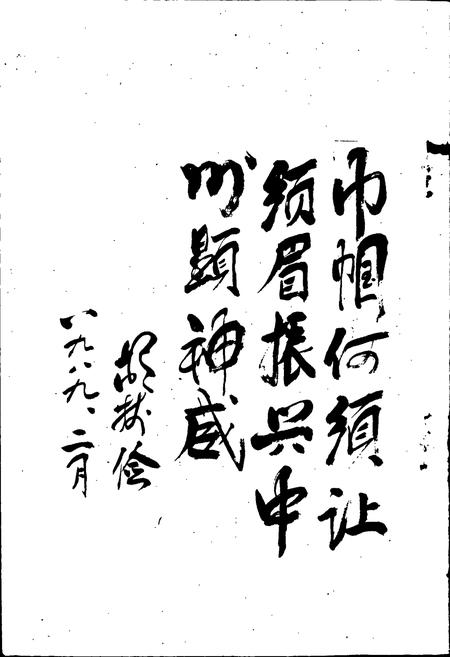 巾帼何須让
须眉振兴中
州顕神威
胡树俭
一九八九、二月